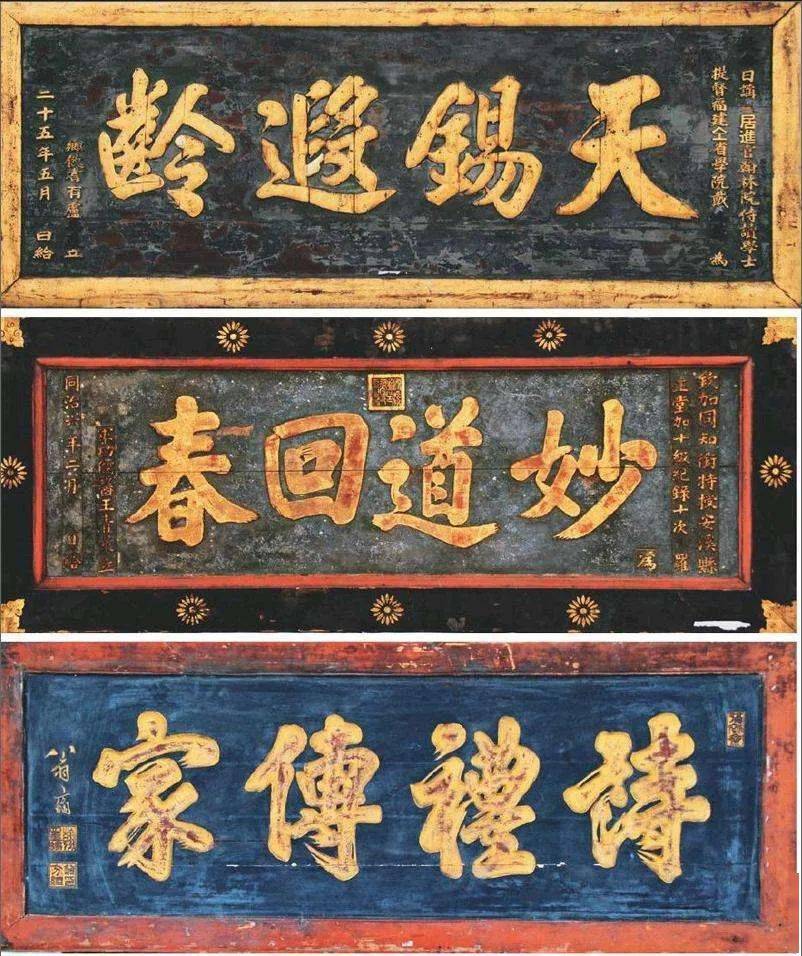 日講起居進官翰林院侍讀學士
提督福建全省學院戴 為
天錫遐齡
鄉飲耆有盧 立
二十五年五月 日給
欽加同知銜特授安溪縣
正堂加十級紀錄十次 羅
為
妙道回春
立
同治 年二月 日給
詩禮傳家
八翁